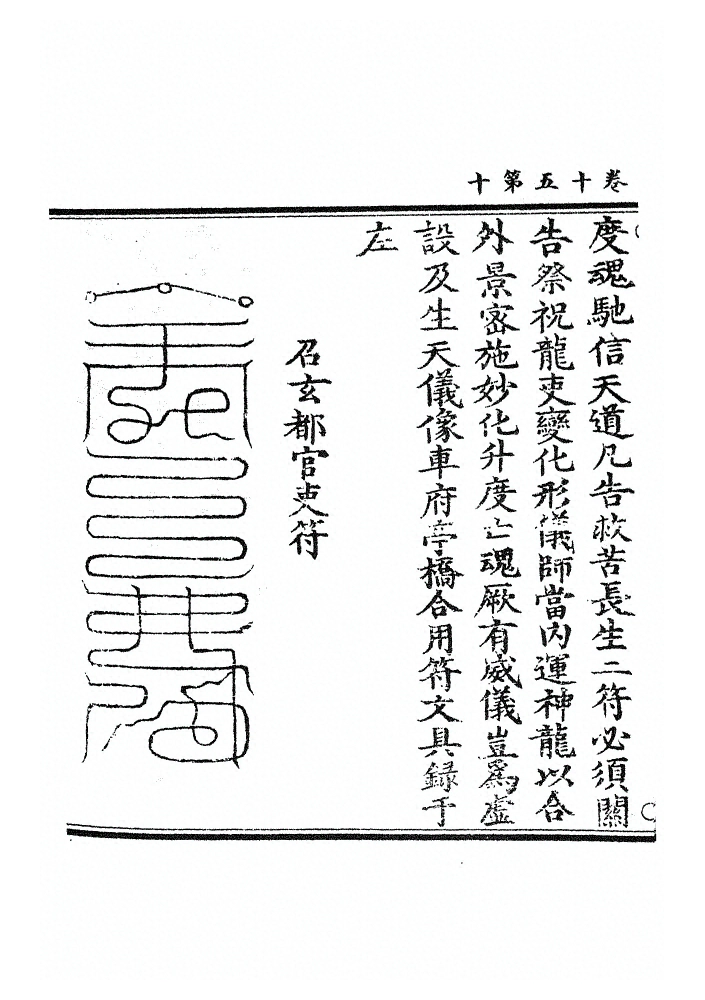 卷十五第十
度魂馳信天道凡告救苦長生二符必須關
告祭祝龍吏變化形儀師當內運神龍以合
外景密施妙化升度亡魂厥有威儀豈爲虛
設及生天儀像車府亭橋合用符文具録于
左
召玄都官吏符